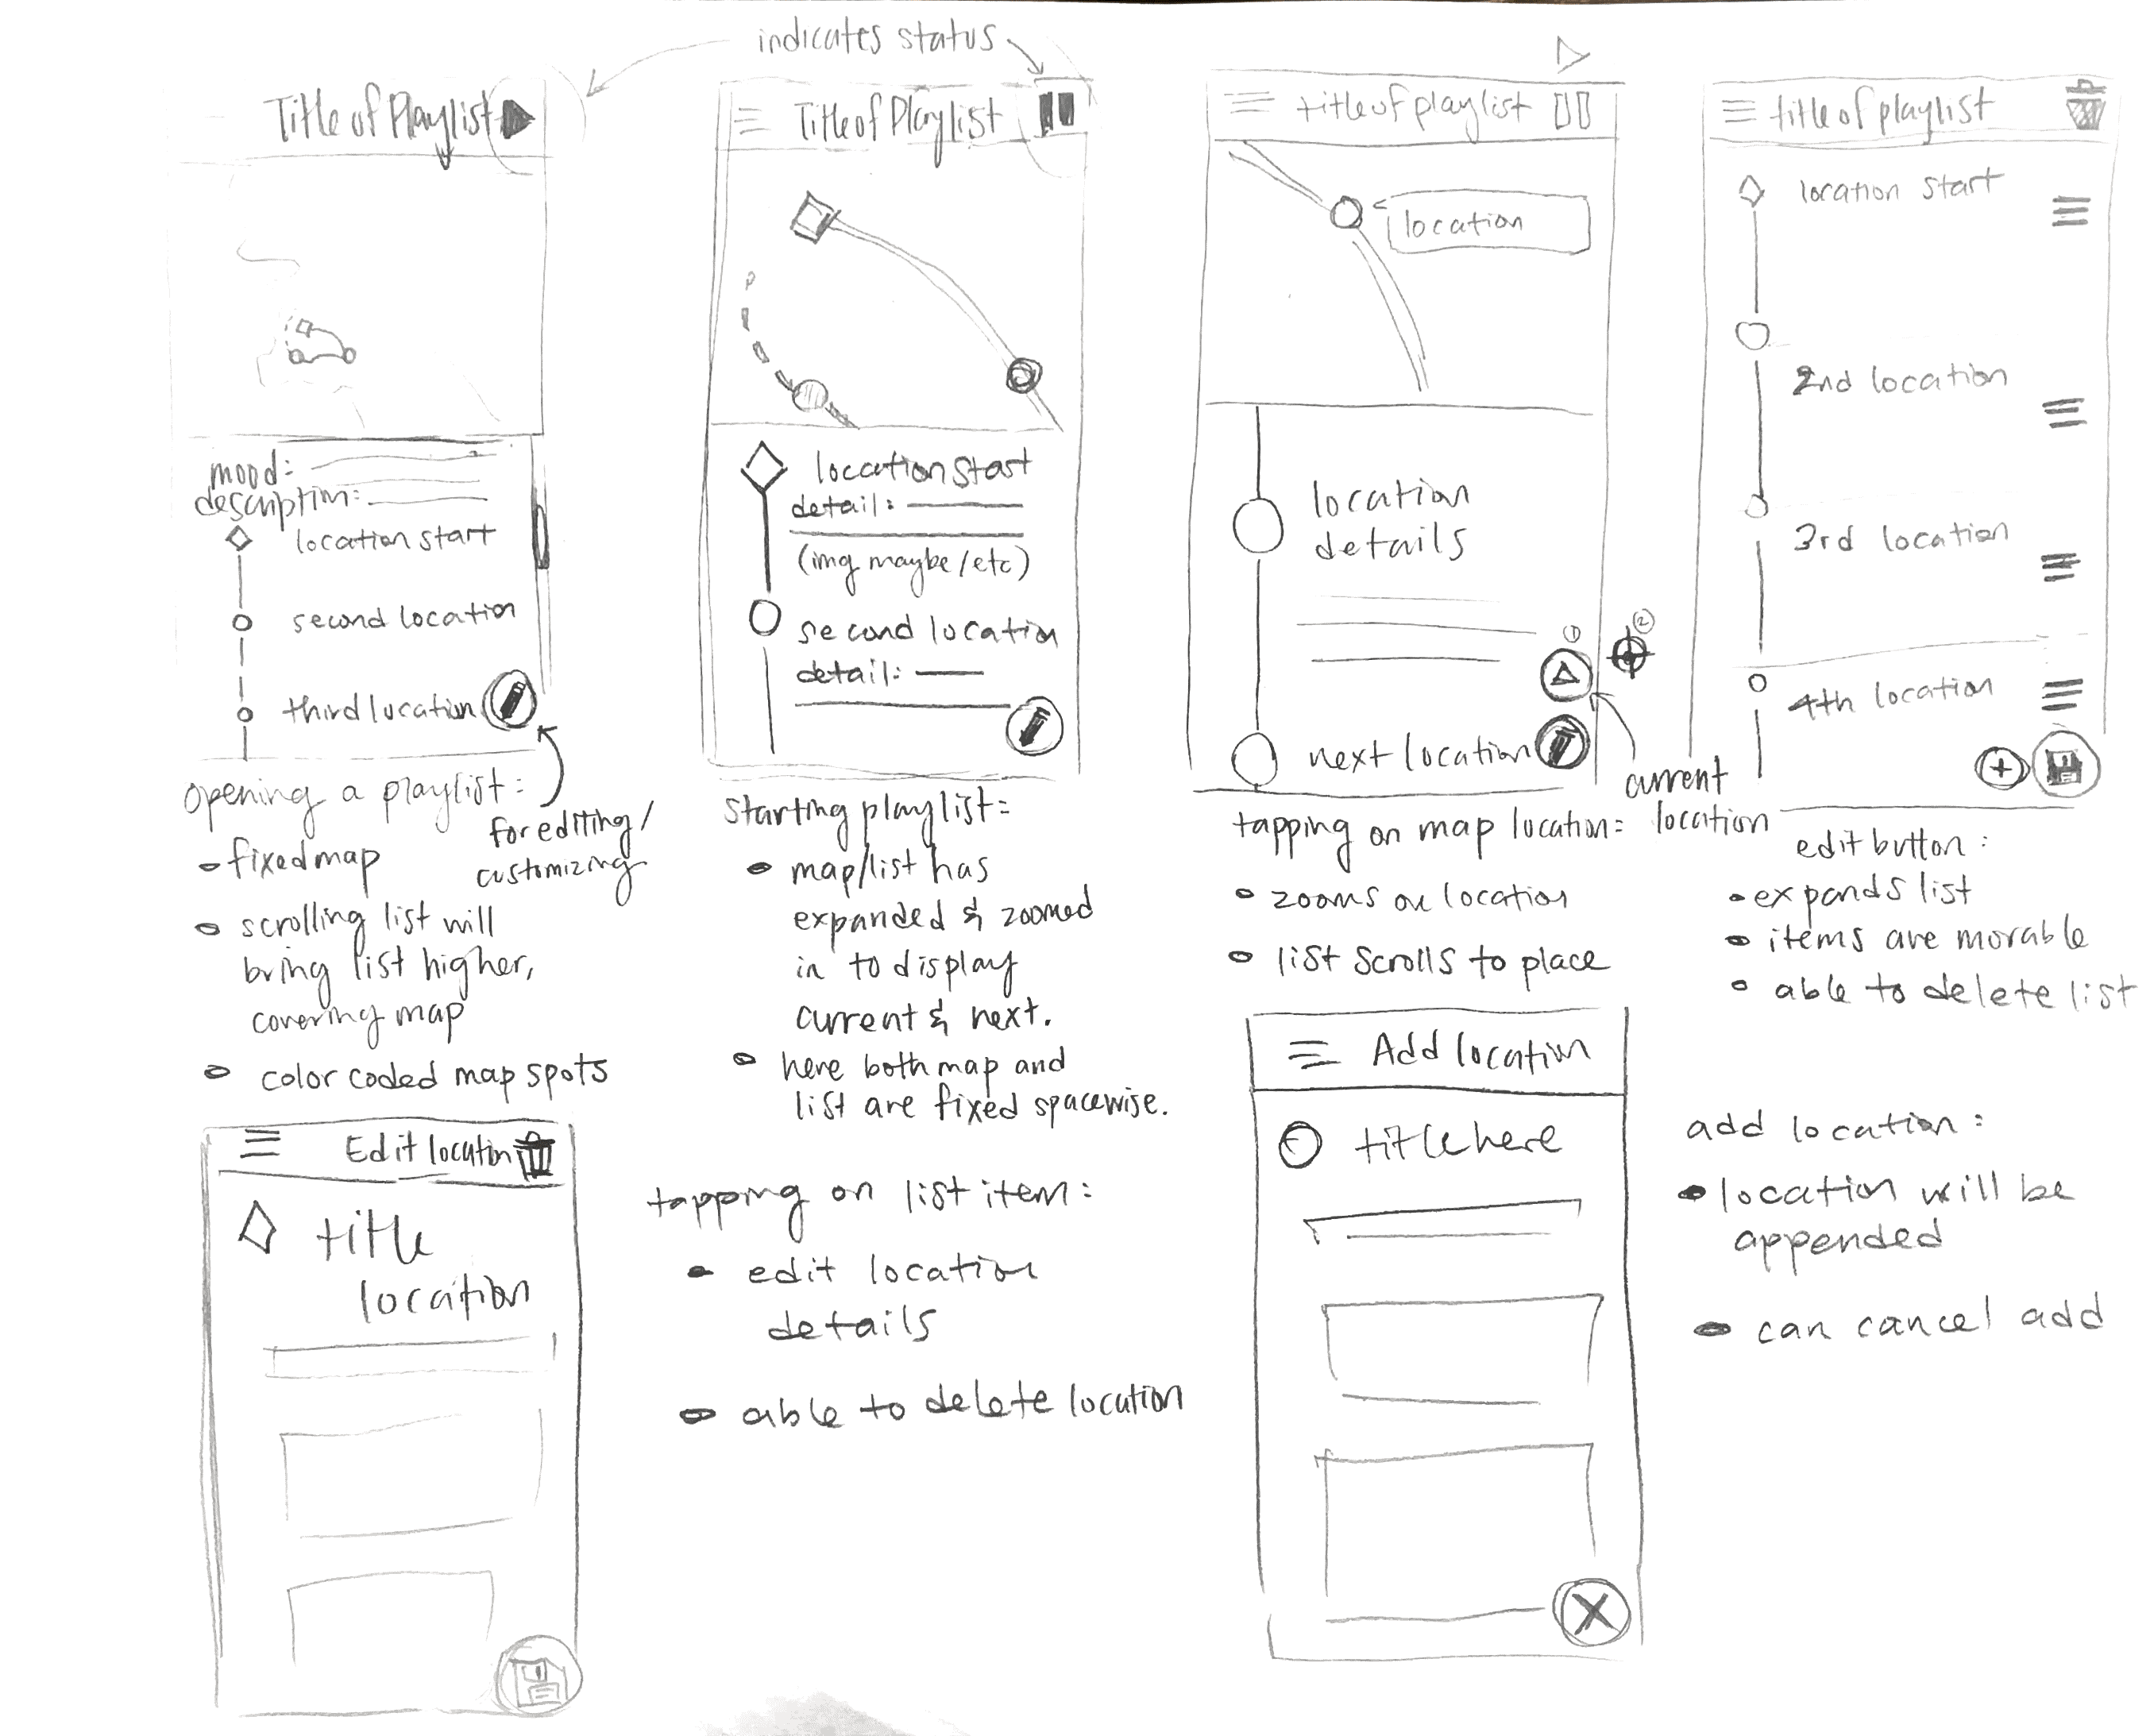 indicates status
Title of Playlist
mood:
description:
location start
second location
third location
opening a playlist:
for editing/
customizing
fixed map
scrolling list will
bring list higher,
covering map
color coded map spots
Title of Playlist
location start
detail:
(img maybe/etc)
second location
detail:
starting playlist:
map/list has
expanded & zoomed
in to display
current & next.
here both map and
list are fixed spacewise.
title of playlist
location
location
details
1
2
next location
current
location
tapping on map location:
zooms on location
list scrolls to place
title of playlist
location start
2nd location
3rd location
4th location
edit button:
expands list
items are movable
able to delete list
Edit location
title
location
tapping on list item:
edit location
details
able to delete location
Add location
title here
add location:
location will be
appended
can cancel add